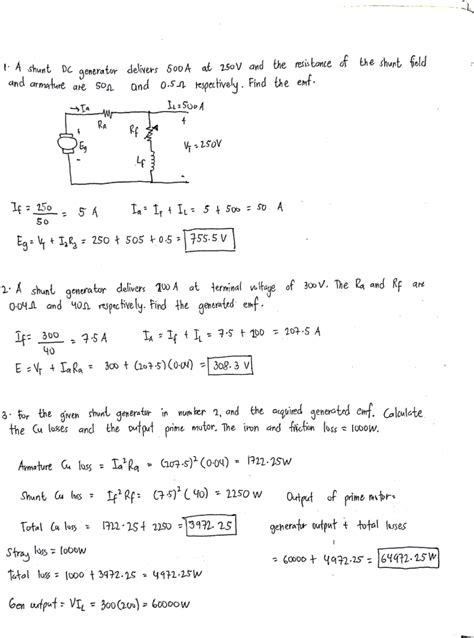 1. A shunt DC generator delivers 500A at 250V and the resistance of the shunt field
and armature are 50Ω and 0.5Ω respectively. Find the emf.
→Ia
IL=500A
RA
Rf
+
+
Eg
VT=250V
Lf
-
-
If = 250/50 = 5 A Ia = If + IL = 5 + 500 = 50 A
Eg = VT + IaRa = 250 + 505 + 0.5 = 755.5 V
2. A shunt generator delivers 200A at terminal voltage of 300V. The Ra and Rf are
0.04Ω and 40Ω respectively. Find the generated emf.
If = 300/40 = 7.5A IA = If + IL = 7.5 + 200 = 207.5 A
E = VT + IaRa = 300 + (207.5)(0.04) = 308.3 V
3. For the given shunt generator in number 2, and the acquired generated emf. Calculate
the Cu loses and the output prime motor. The iron and friction loss = 1000W.
Armature Cu loss = Ia²Ra = (207.5)²(0.04) = 1722.25W
Shunt Cu loss = If²Rf = (7.5)²(40) = 2250 W Output of prime motor =
Total Cu loss = 1722.25 + 2250 = 3972.25 generator output + total losses
Stray loss = 1000W = 60000 + 4972.25 = 64972.25W
Total loss = 1000 + 3972.25 = 4972.25W
Gen output = VIL = 300(200) = 60000W